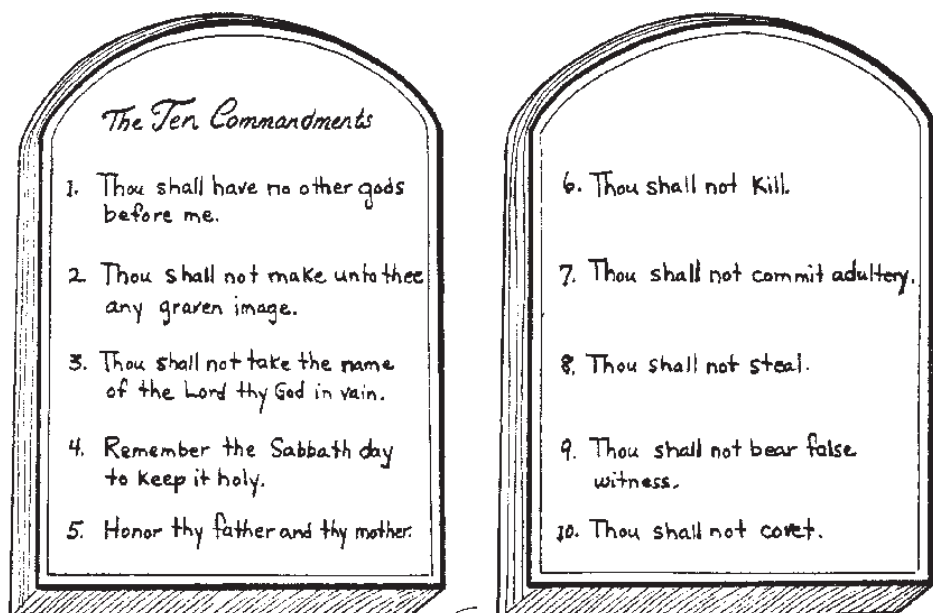 The Ten Commandments
1. Thou shall have no other gods
before me.
2 Thou shall not make unto thee
any graven image.
3. Thou shall not take the name
of the Lord thy God in vain.
4. Remember the Sabbath day
to keep it holy.
5. Honor thy father and thy mother.
6. Thou shall not kill.
7. Thou shall not commit adultery.
8. Thou shall not steal.
9. Thou shall not bear false
witness.
10. Thou shall not covet.